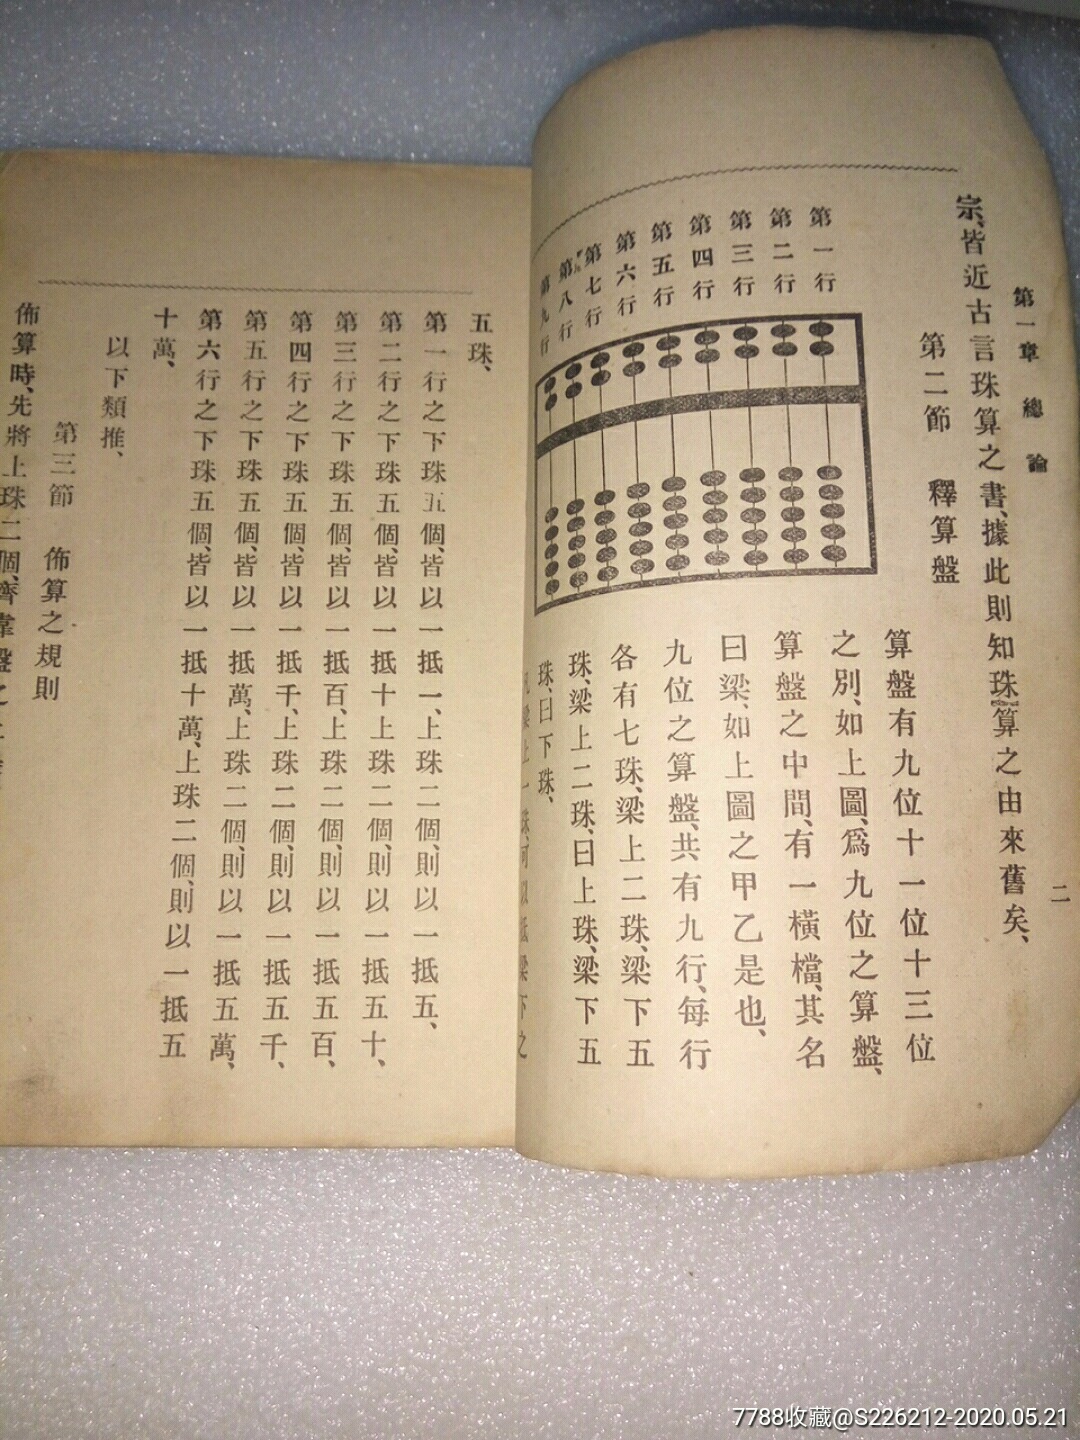 第一章　總論
二
宗、皆近古言珠算之書、據此則知珠算之由來舊矣、
第二節　釋算盤
第一行
第二行
第三行
第四行
第五行
第六行
第七行
第八行
第九行
算盤有九位十一位十三位
之別、如上圖、爲九位之算盤、
算盤之中間、有一橫檔、其名
曰梁、如上圖之甲乙是也、
九位之算盤、共有九行、每行
各有七珠、梁上二珠、梁下五
珠、梁上二珠、曰上珠、梁下五
珠、曰下珠、
梁上一珠、可以抵梁下之
五珠、
第一行之下珠五個、皆以一抵一、上珠二個、則以一抵五、
第二行之下珠五個、皆以一抵十、上珠二個、則以一抵五十、
第三行之下珠五個、皆以一抵百、上珠二個、則以一抵五百、
第四行之下珠五個、皆以一抵千、上珠二個、則以一抵五千、
第五行之下珠五個、皆以一抵萬、上珠二個、則以一抵五萬、
第六行之下珠五個、皆以一抵十萬、上珠二個、則以一抵五
十萬、
以下類推、
第三節　佈算之規則
佈算時、先將上珠二個、齊靠盤之上
7788收藏@S226212-2020.05.21